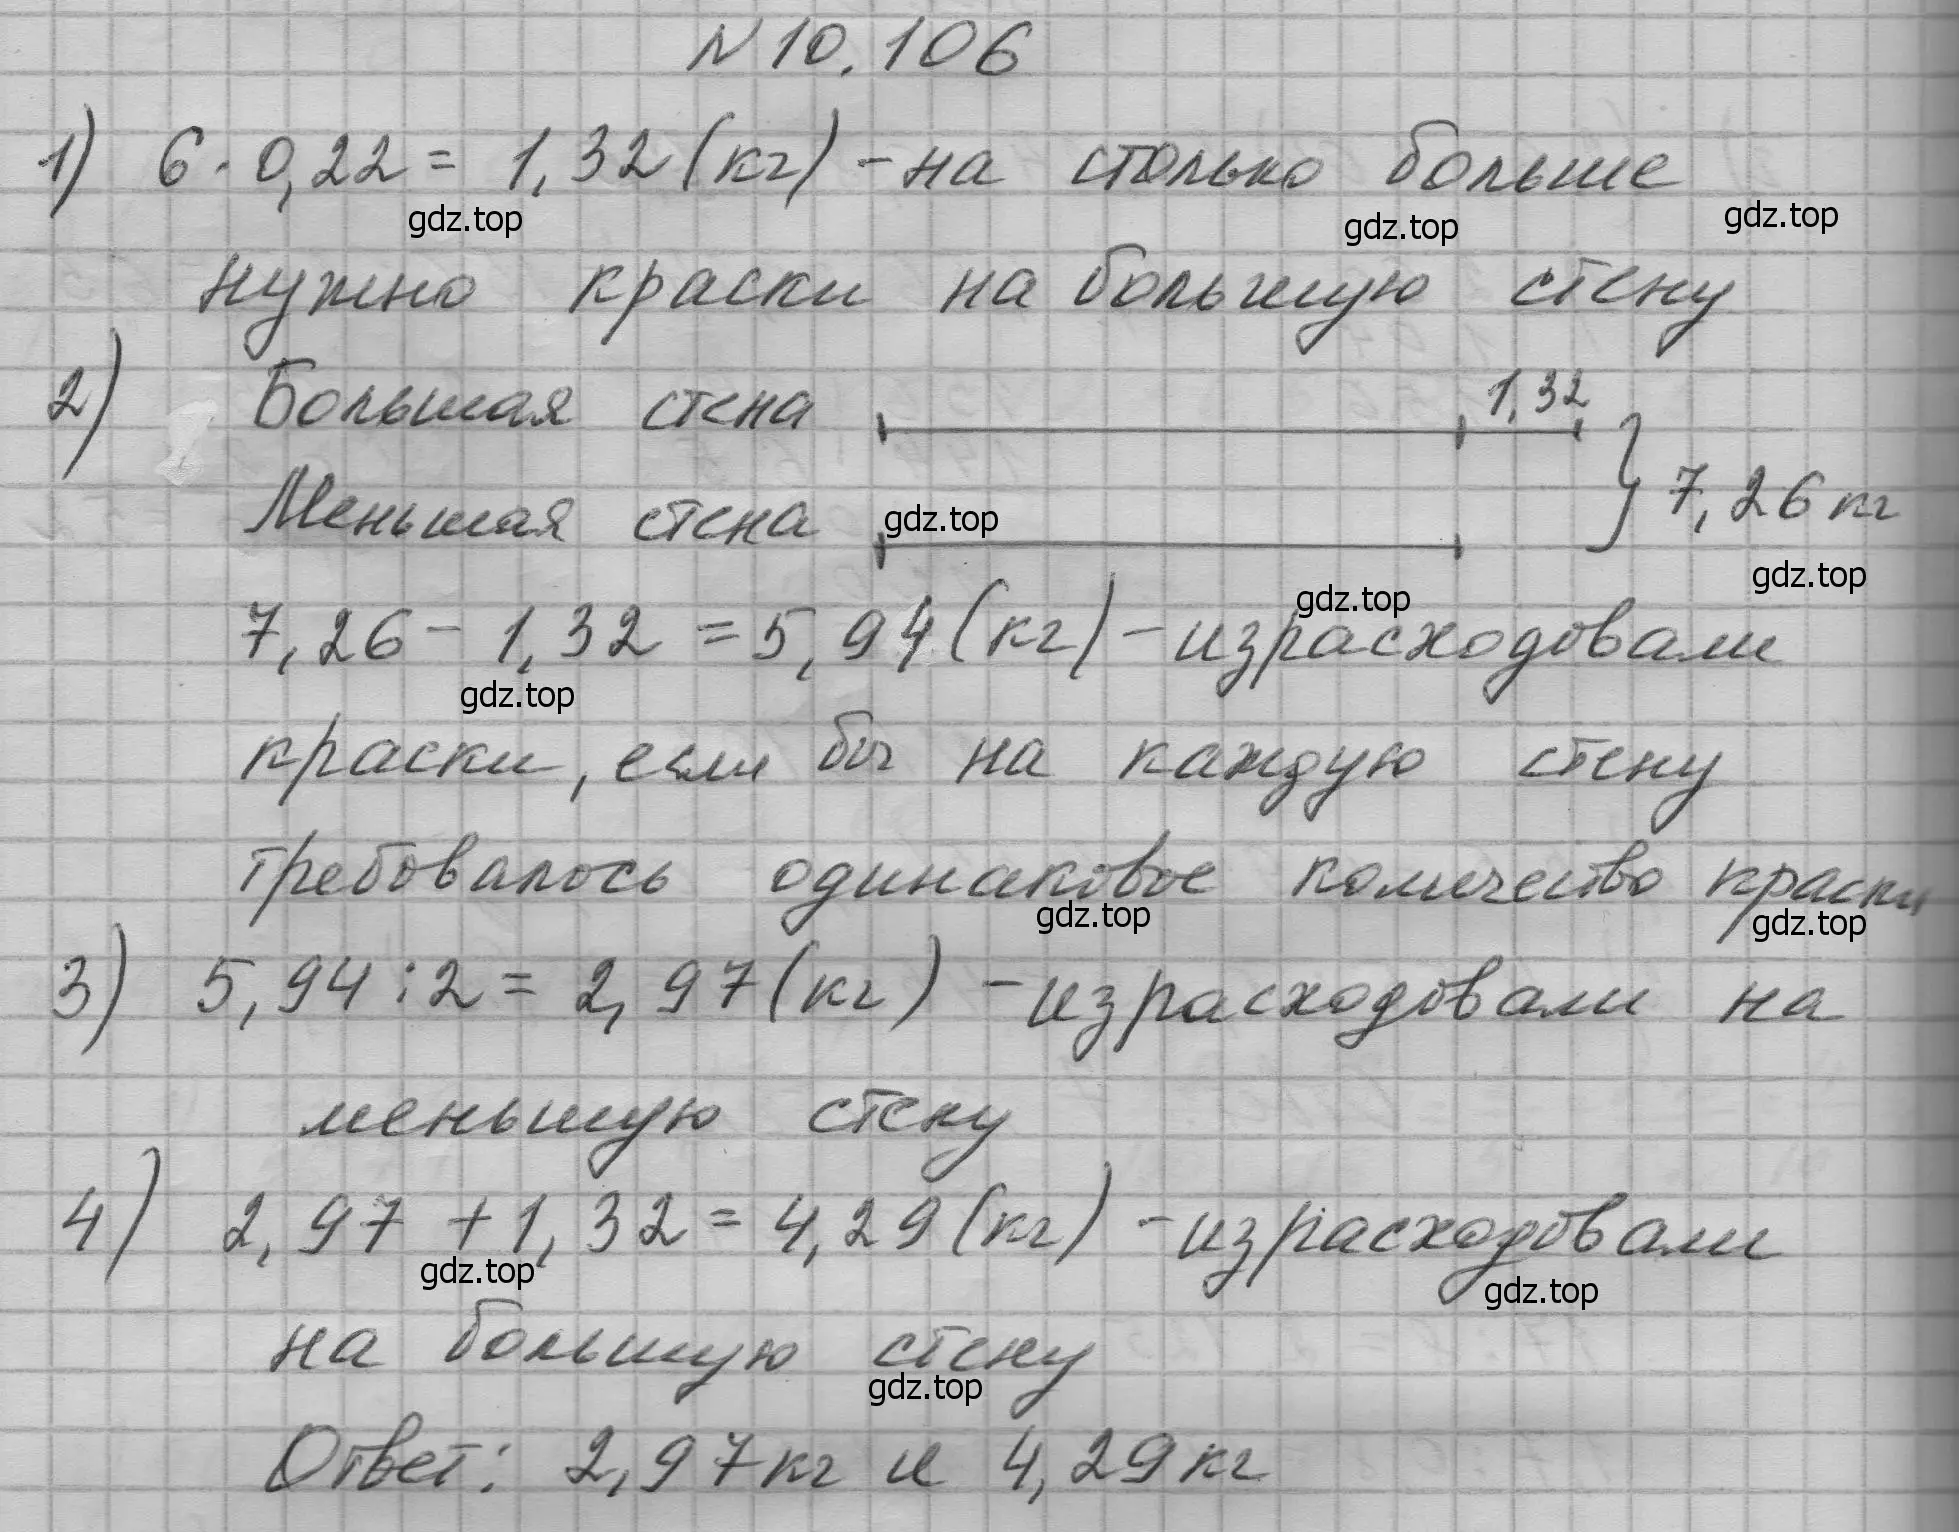 № 10.106
1) 6 · 0,22 = 1,32 (кг) - на столько больше
gdz.top gdz.top gdz.top
нужно краски на большую стену
2) Большая стена 1,32
Меньшая стена gdz.top 7,26 кг
gdz.top
7,26 - 1,32 = 5,94 (кг) - израсходовали
gdz.top gdz.top
краски, если бы на каждую стену
требовалось одинаковое количество краски
gdz.top gdz.top
3) 5,94 : 2 = 2,97 (кг) - израсходовали на
меньшую стену
4) 2,97 + 1,32 = 4,29 (кг) - израсходовали
gdz.top gdz.top
на большую стену
gdz.top
Ответ: 2,97 кг и 4,29 кг